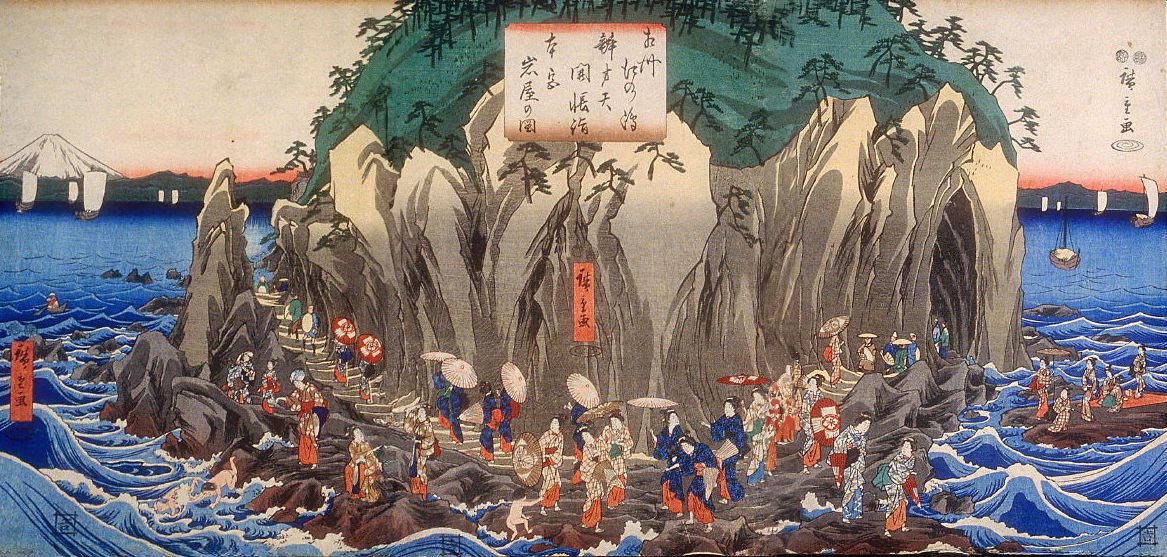 相州江の嶋
辨才天
開帳詣
本宮
岩屋の図
廣重画
廣重画
廣重画